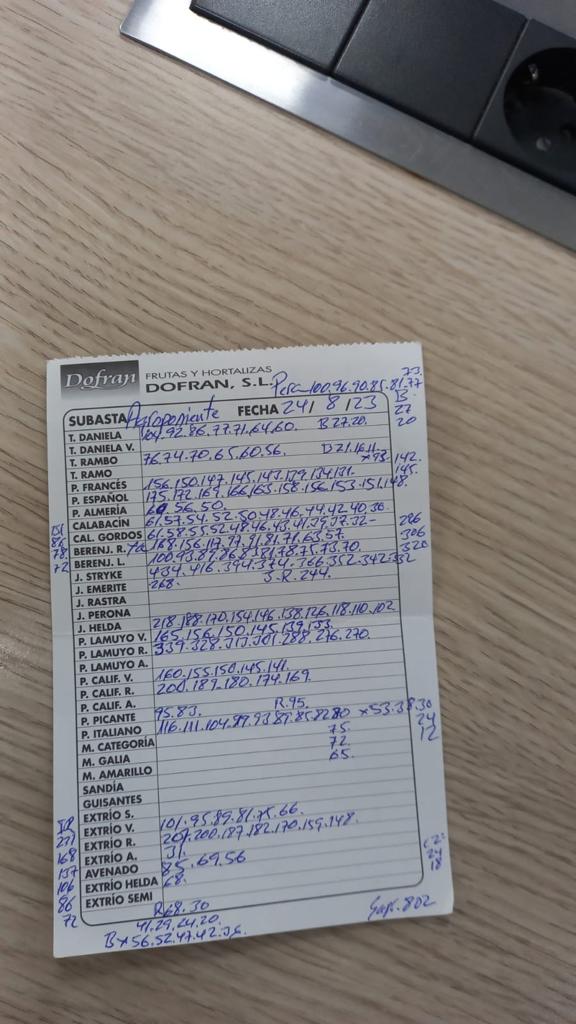 Dofran FRUTAS Y HORTALIZAS
DOFRAN, S.L. Pera 100.96.90.85.81.77
73.
SUBASTA Agroponiente FECHA 24/ 8 /23 B
27
20
T. DANIELA 104.92.86.77.71.64.60. B 27.20.
T. DANIELA V.
T. RAMBO 76.74.70.65.60.56. B 21.16.11.
T. RAMO
P. FRANCÉS 156.150.147.145.143.139.134.131. 142.
P. ESPAÑOL 175.172.169.166.163.158.156.153.151.148 145.
P. ALMERÍA 60.56.50.
CALABACÍN 61.57.54.52.50.48.46.44.42.40.38.
CAL. GORDOS 61.58.55.52.48.46.43.41.39.37.32-
BERENJ. R. 168.156.117.97.91.81.71.63.57. 286
BERENJ. L. 100.93.87.86.83.81.78.75.73.70. 306
J. STRYKE 434.416.394.374.366.352.342.332 320
J. EMERITE 268. J.R. 244.
J. RASTRA
J. PERONA
J. HELDA 218.188.170.154.146.138.126.118.110.102
P. LAMUYO V. 165.156.150.145.139.133.
P. LAMUYO R. 339.328.313.301.288.276.270.
P. LAMUYO A.
P. CALIF. V. 160.155.150.145.141.
P. CALIF. R. 200.189.180.174.169.
P. CALIF. A.
P. PICANTE 95.83. R.95.
P. ITALIANO 116.111.104.97.93.89.85.82.80 x53.38.30
M. CATEGORÍA 75. 24
M. GALIA 72. 12
M. AMARILLO 65.
SANDÍA
GUISANTES
EXTRÍO S. 101.95.89.81.75.66.
EXTRÍO V. 207.200.187.182.170.159.148.
EXTRÍO R. 31.
EXTRÍO A. 85.69.56
AVENADO 68.
EXTRÍO HELDA
EXTRÍO SEMI
R68.30
41.29.24.20.
Bx56.52.47.42.36.
86
78
72
271
168
137
106
86
72
24
18
802